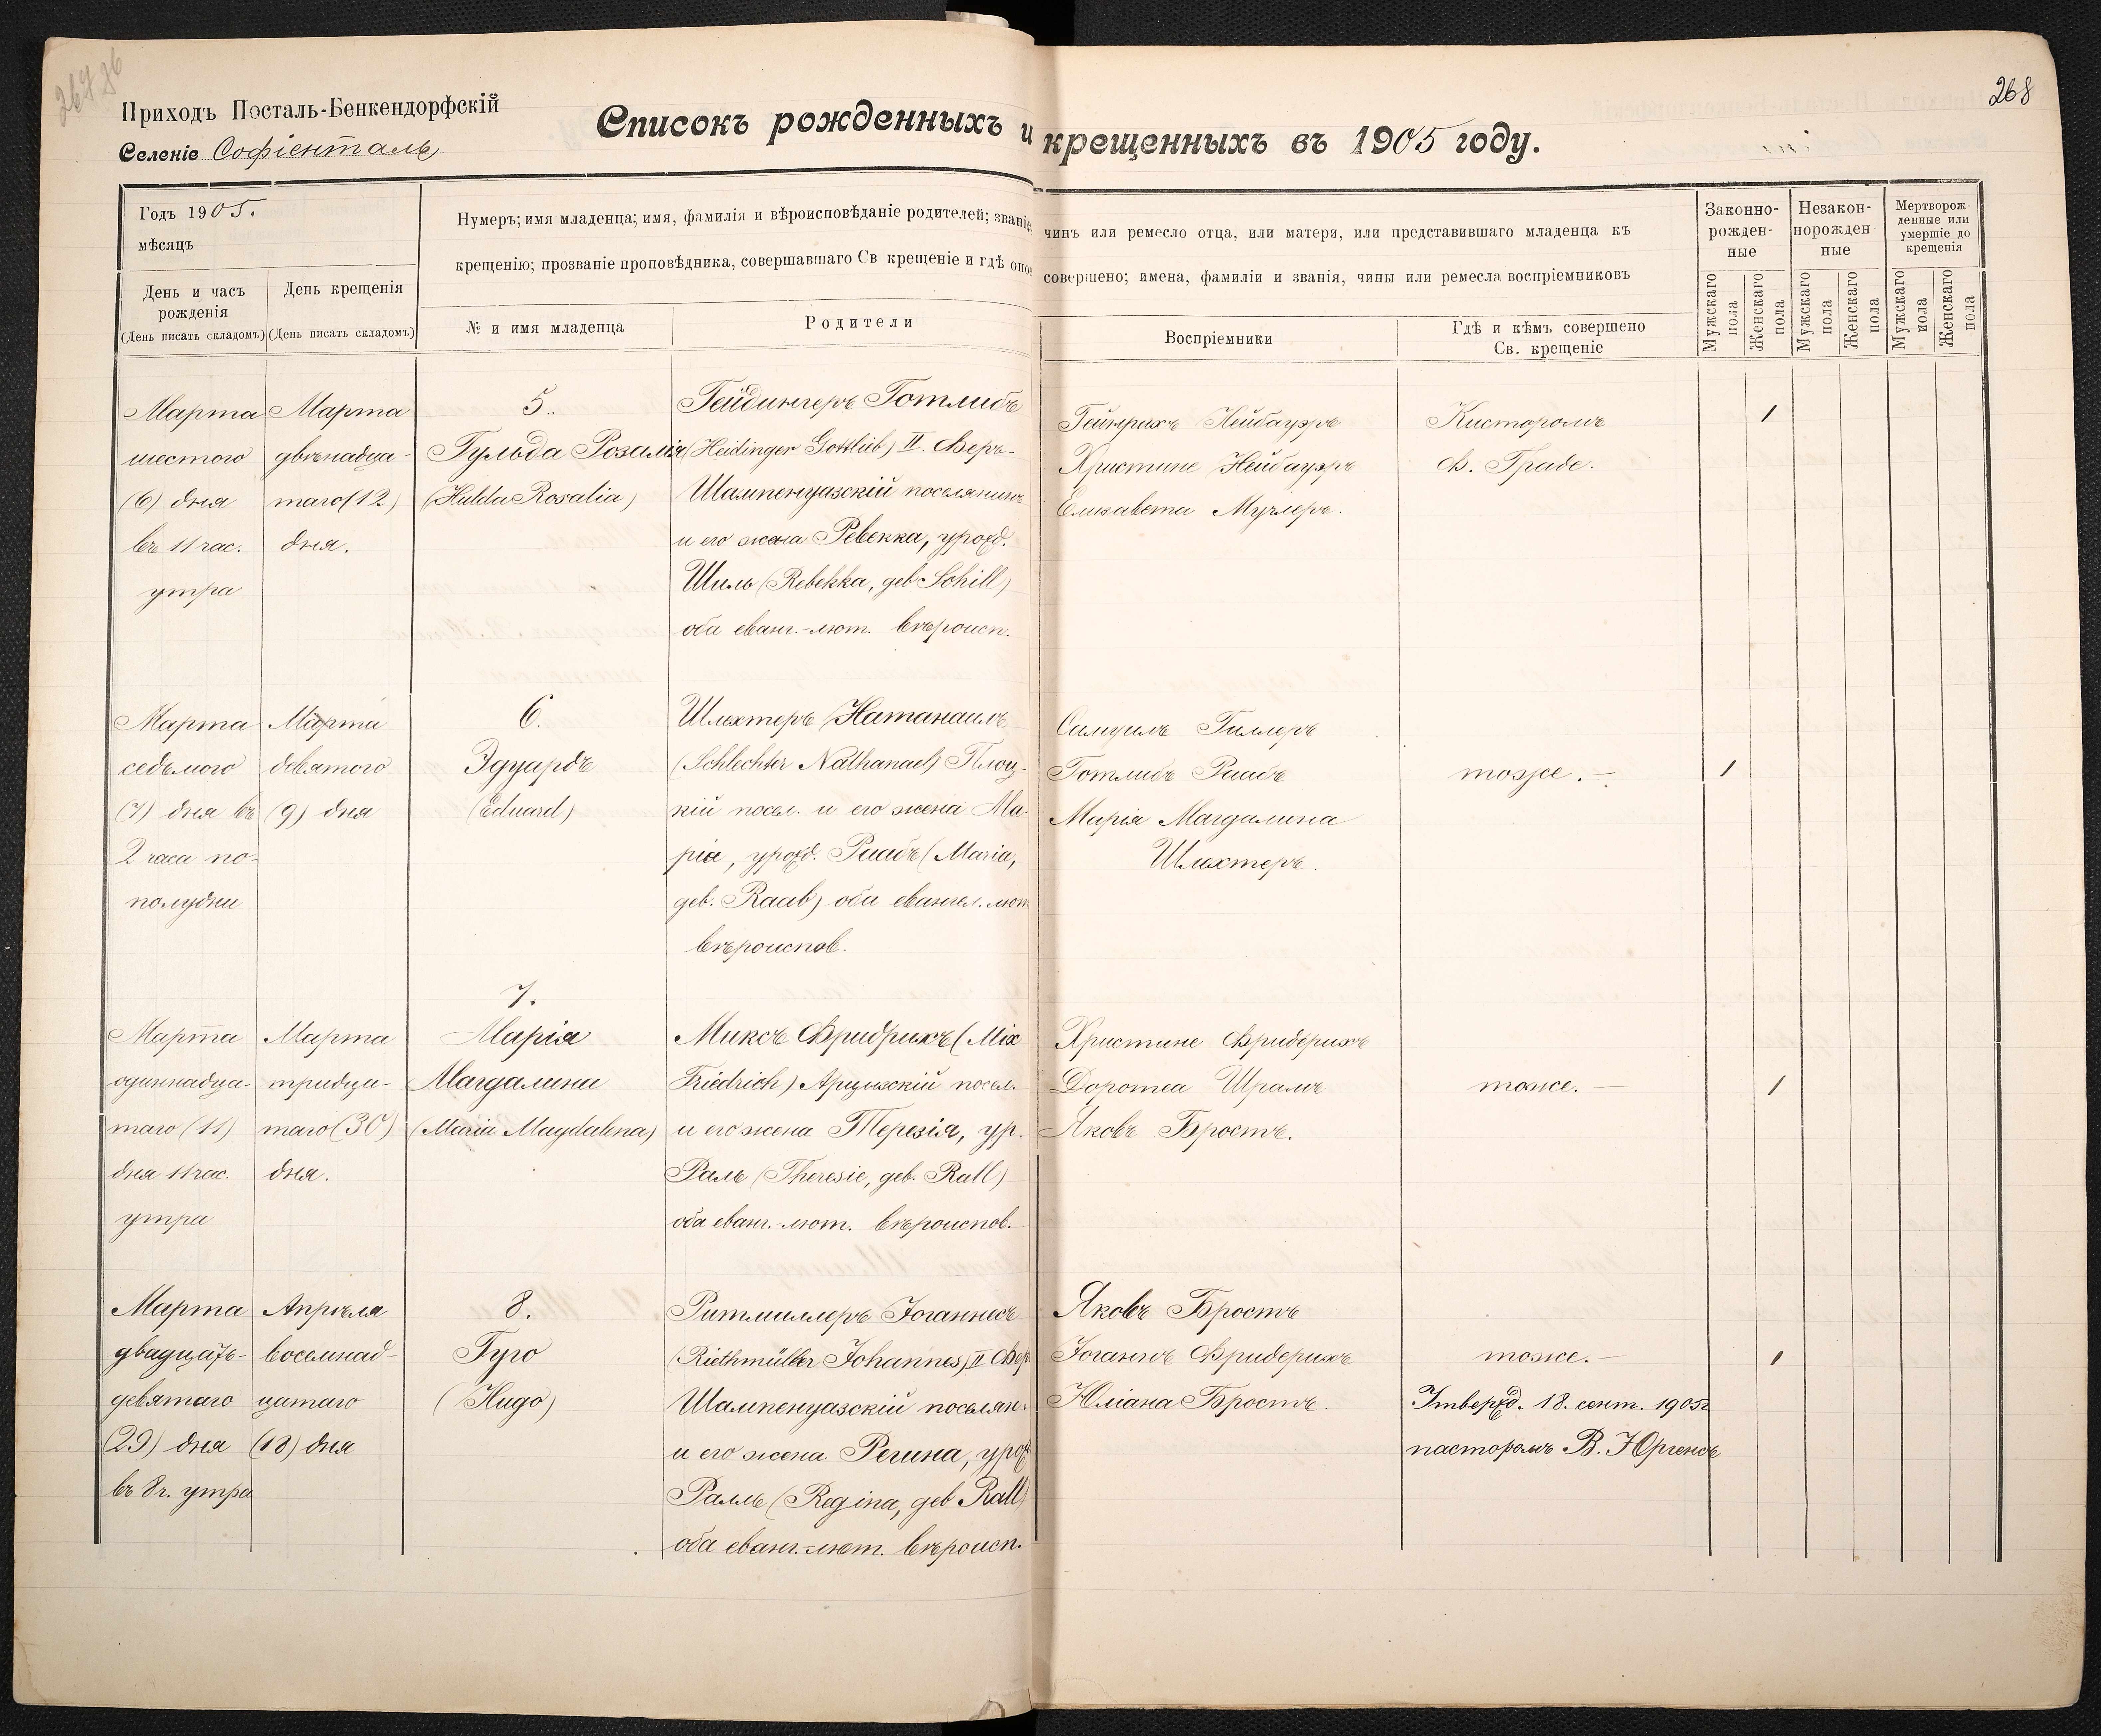 268
Приходъ Посталь-Бенкендорфскій
Селеніе Софіенталь
Списокъ рожденныхъ и крещенныхъ въ 1905 году.
Годъ 1905.
мѣсяцъ
День и часъ
рожденія
(День писать складомъ)
День крещенія
(День писать складомъ)
Нумеръ; имя младенца; имя, фамилія и вѣроисповѣданіе родителей; званіе, чинъ или ремесло отца, или матери, или представившаго младенца къ
крещенію; прозваніе проповѣдника, совершавшаго Св крещеніе и гдѣ оное совершено; имена, фамиліи и званія, чины или ремесла воспріемниковъ
№ и имя младенца
Родители
Воспріемники
Гдѣ и кѣмъ совершено
Св. крещеніе
Законно-
рожден-
ные
Незакон-
норожден
ные
Мертворож-
денные или
умершіе до
крещенія
Мужскаго
пола
Женскаго
пола
Мужскаго
пола
Женскаго
пола
Мужскаго
пола
Женскаго
пола
Марта
шестого
(6) дня
въ 11 час.
утра
Марта
двѣнадца-
таго (12)
дня.
5.
Гульда Розалія
(Hulda Rosalia)
Гейдингеръ Готлибъ
(Heidinger Gottlieb) II. Феръ-
Шампенуазскій поселянинъ
и его жена Ревекка, урожд.
Шиль (Rebekka, geb Schill)
оба еванг.-лют. вѣроисп.
Гейнрихъ Нейбауэръ
Христине Нейбауэръ
Елизавета Мучлеръ.
Кисторомъ
Ф. Траде.
1
Марта
седьмого
(7) дня въ
2 часа по-
полудни
Марта
девятого
(9) дня
6.
Эдуардъ
(Eduard)
Шлехтеръ Натанаилъ
(Schlechter Nathanael) Плоц-
кій посел. и его жена Ма-
рія, урожд. Раабъ (Maria,
geb. Raab) оба евангел. лют
вѣроиспов.
Самуилъ Гиллеръ
Готлибъ Раабъ
Марія Магдалина
Шлехтеръ.
тоже.-
1
Марта
одиннадца-
таго (11)
дня 11 час.
утра
Марта
тридца-
таго (30)
дня.
7.
Марія
Магдалина
(Maria Magdalena)
Миксъ Фридрихъ (Mix
Friedrich) Арцызскій посел.
и его жена Терезія, ур.
Раль (Theresie, geb. Rall)
оба еванг. лют. вѣроиспов.
Христине Фридерихъ
Доротеа Шрамъ
Яковъ Бростъ.
тоже.-
1
Марта
двадцать-
девятаго
(29) дня
въ 8 ч. утра
Апрѣля
восемнад-
цатаго
(18) дня
8.
Гуго
(Hugo)
Ритмиллеръ Іоганнесъ
(Riethmüller Johannes) II Фер
Шампенуазскій поселян.
и его жена Регина, урож
Ралль (Regina, geb Rall)
оба еванг.-лют. вѣроисп.
Яковъ Бростъ
Іоганнъ Фридерихъ
Юліана Бростъ.
тоже.-
Утвержд. 18. сент. 1905г
пасторомъ В. Юргенсъ
1